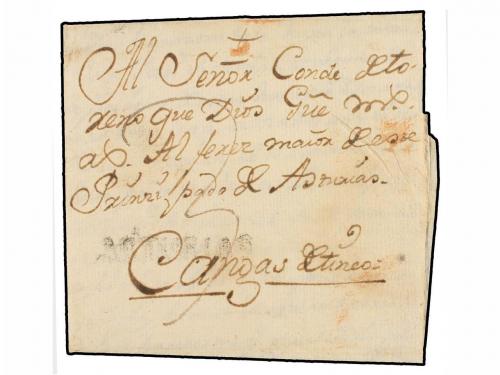 Al Señor Conde de to-
reno que Dios Gūe ms.
as. Alferez maior de este
Prinzipado de Asturias.
Cangas de tineo=